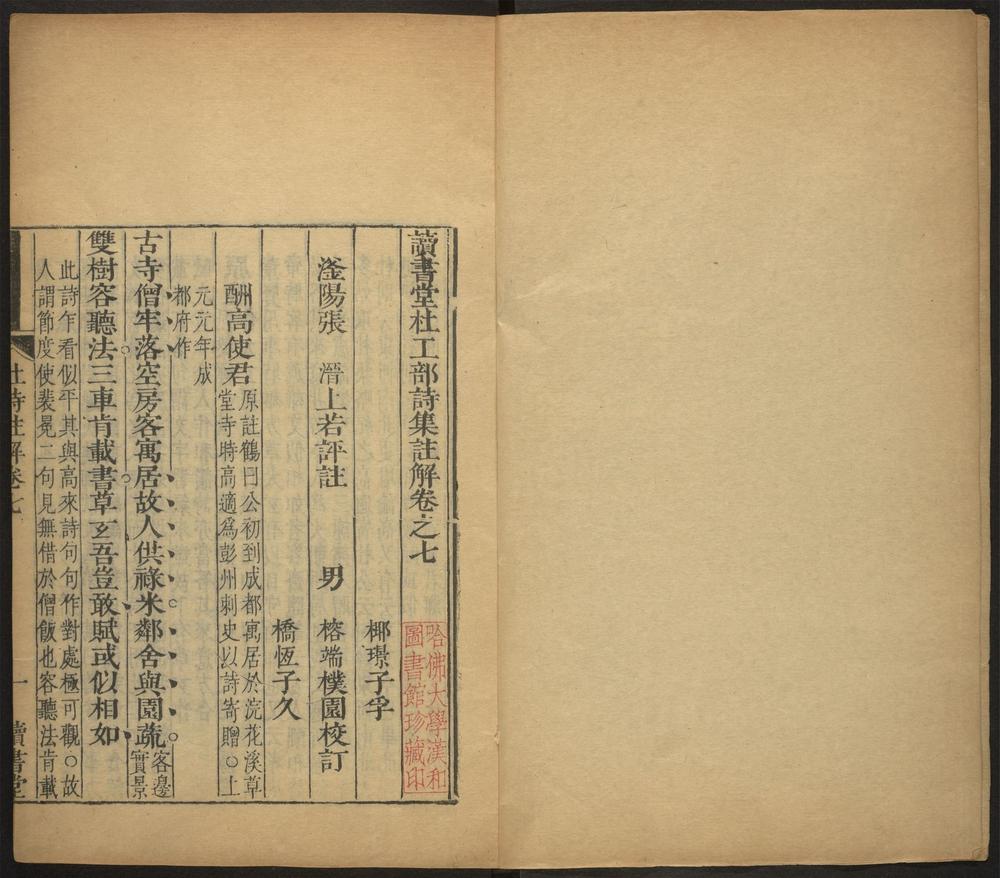 讀書堂杜工部詩集註解卷之七
哈佛大學漢和
圖書館珍藏印
榔璟子孚
滏陽張　溍上若評註　男　榕端樸園校訂
橋恆子久
酬高使君
原註鶴曰公初到成都寓居於浣花溪草
堂寺時高適為彭州刺史以詩寄贈○上
元元年成
都府作
古寺僧牢落空房客寓居故人供祿米鄰舍與園蔬
客邊
實景
雙樹容聽法三車肯載書草玄吾豈敢賦或似相如
此詩乍看似平其與高來詩句句作對處極可觀○故
人謂節度使裴冕二句見無借於僧飯也容聽法肯載
杜詩註解卷七
一
讀書堂